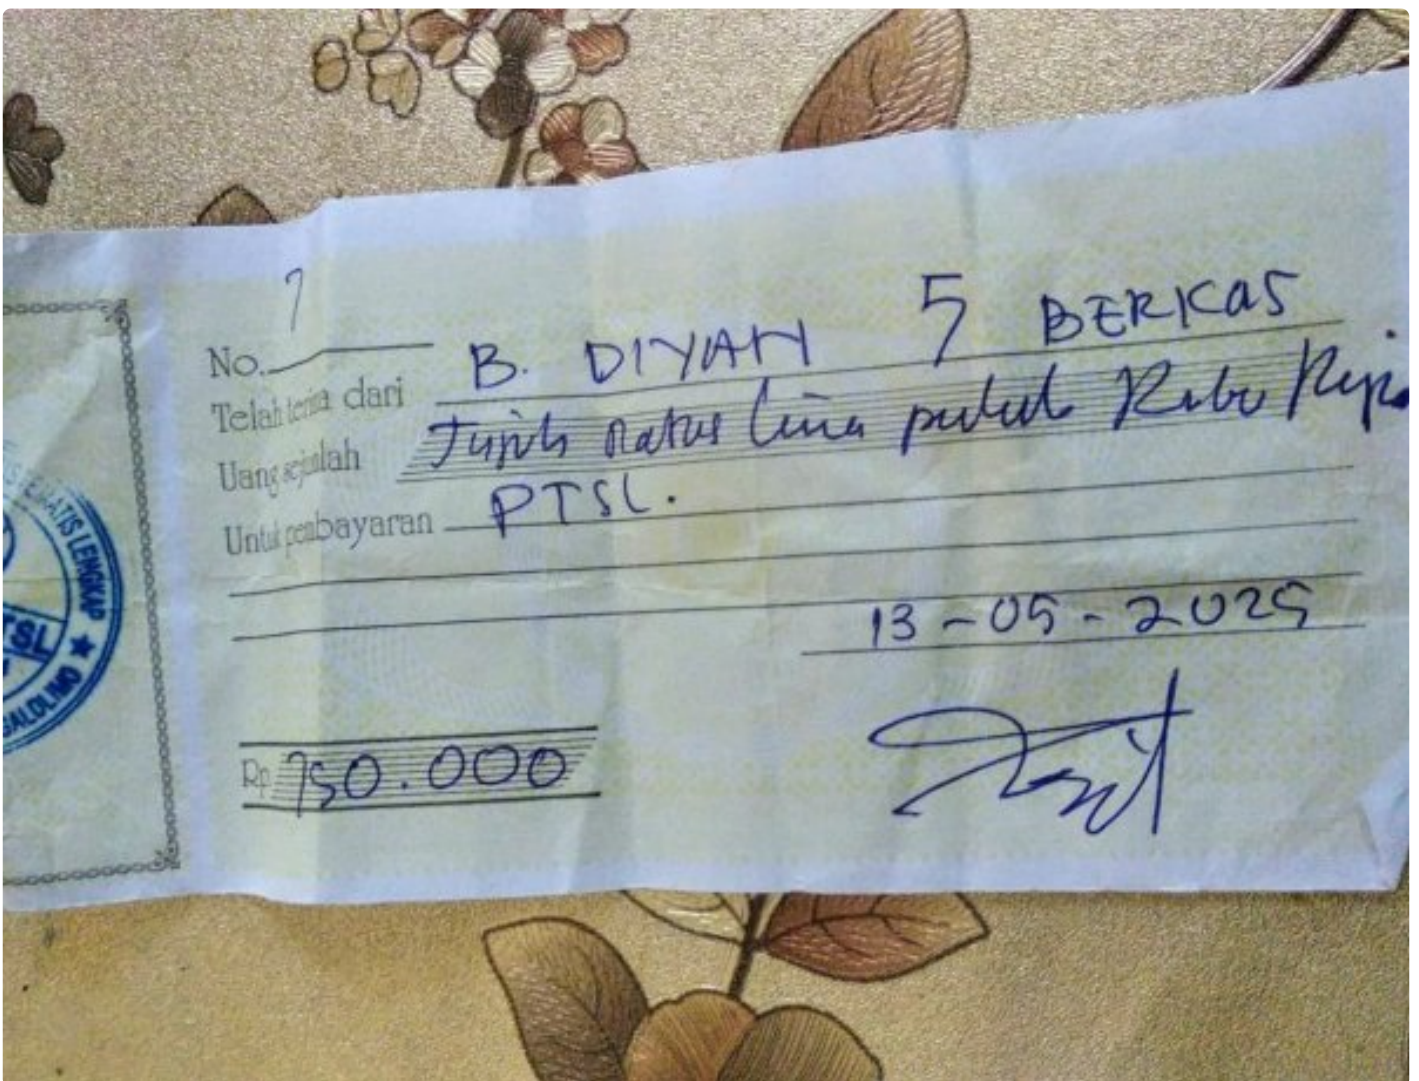 No. 7
Telah terima dari B. DIYAH 5 BERKAS
Uang sejumlah Tujuh ratus lima puluh Ribu Rupia
Untuk pembayaran PTSL.
13-05-2025
Rp 750.000
EMATIS LENGKAP ★
TSL
SALOLIMO